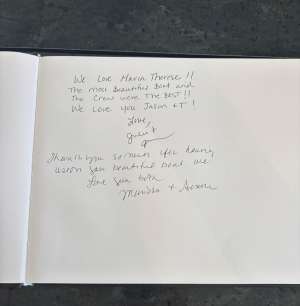 We Love Maria Therese!!
The most Beautiful Boat and
The Crew were The BEST!!
We Love you Jason + T!
Love,
Thank you so much for having
us on your beautiful boat
Love you both